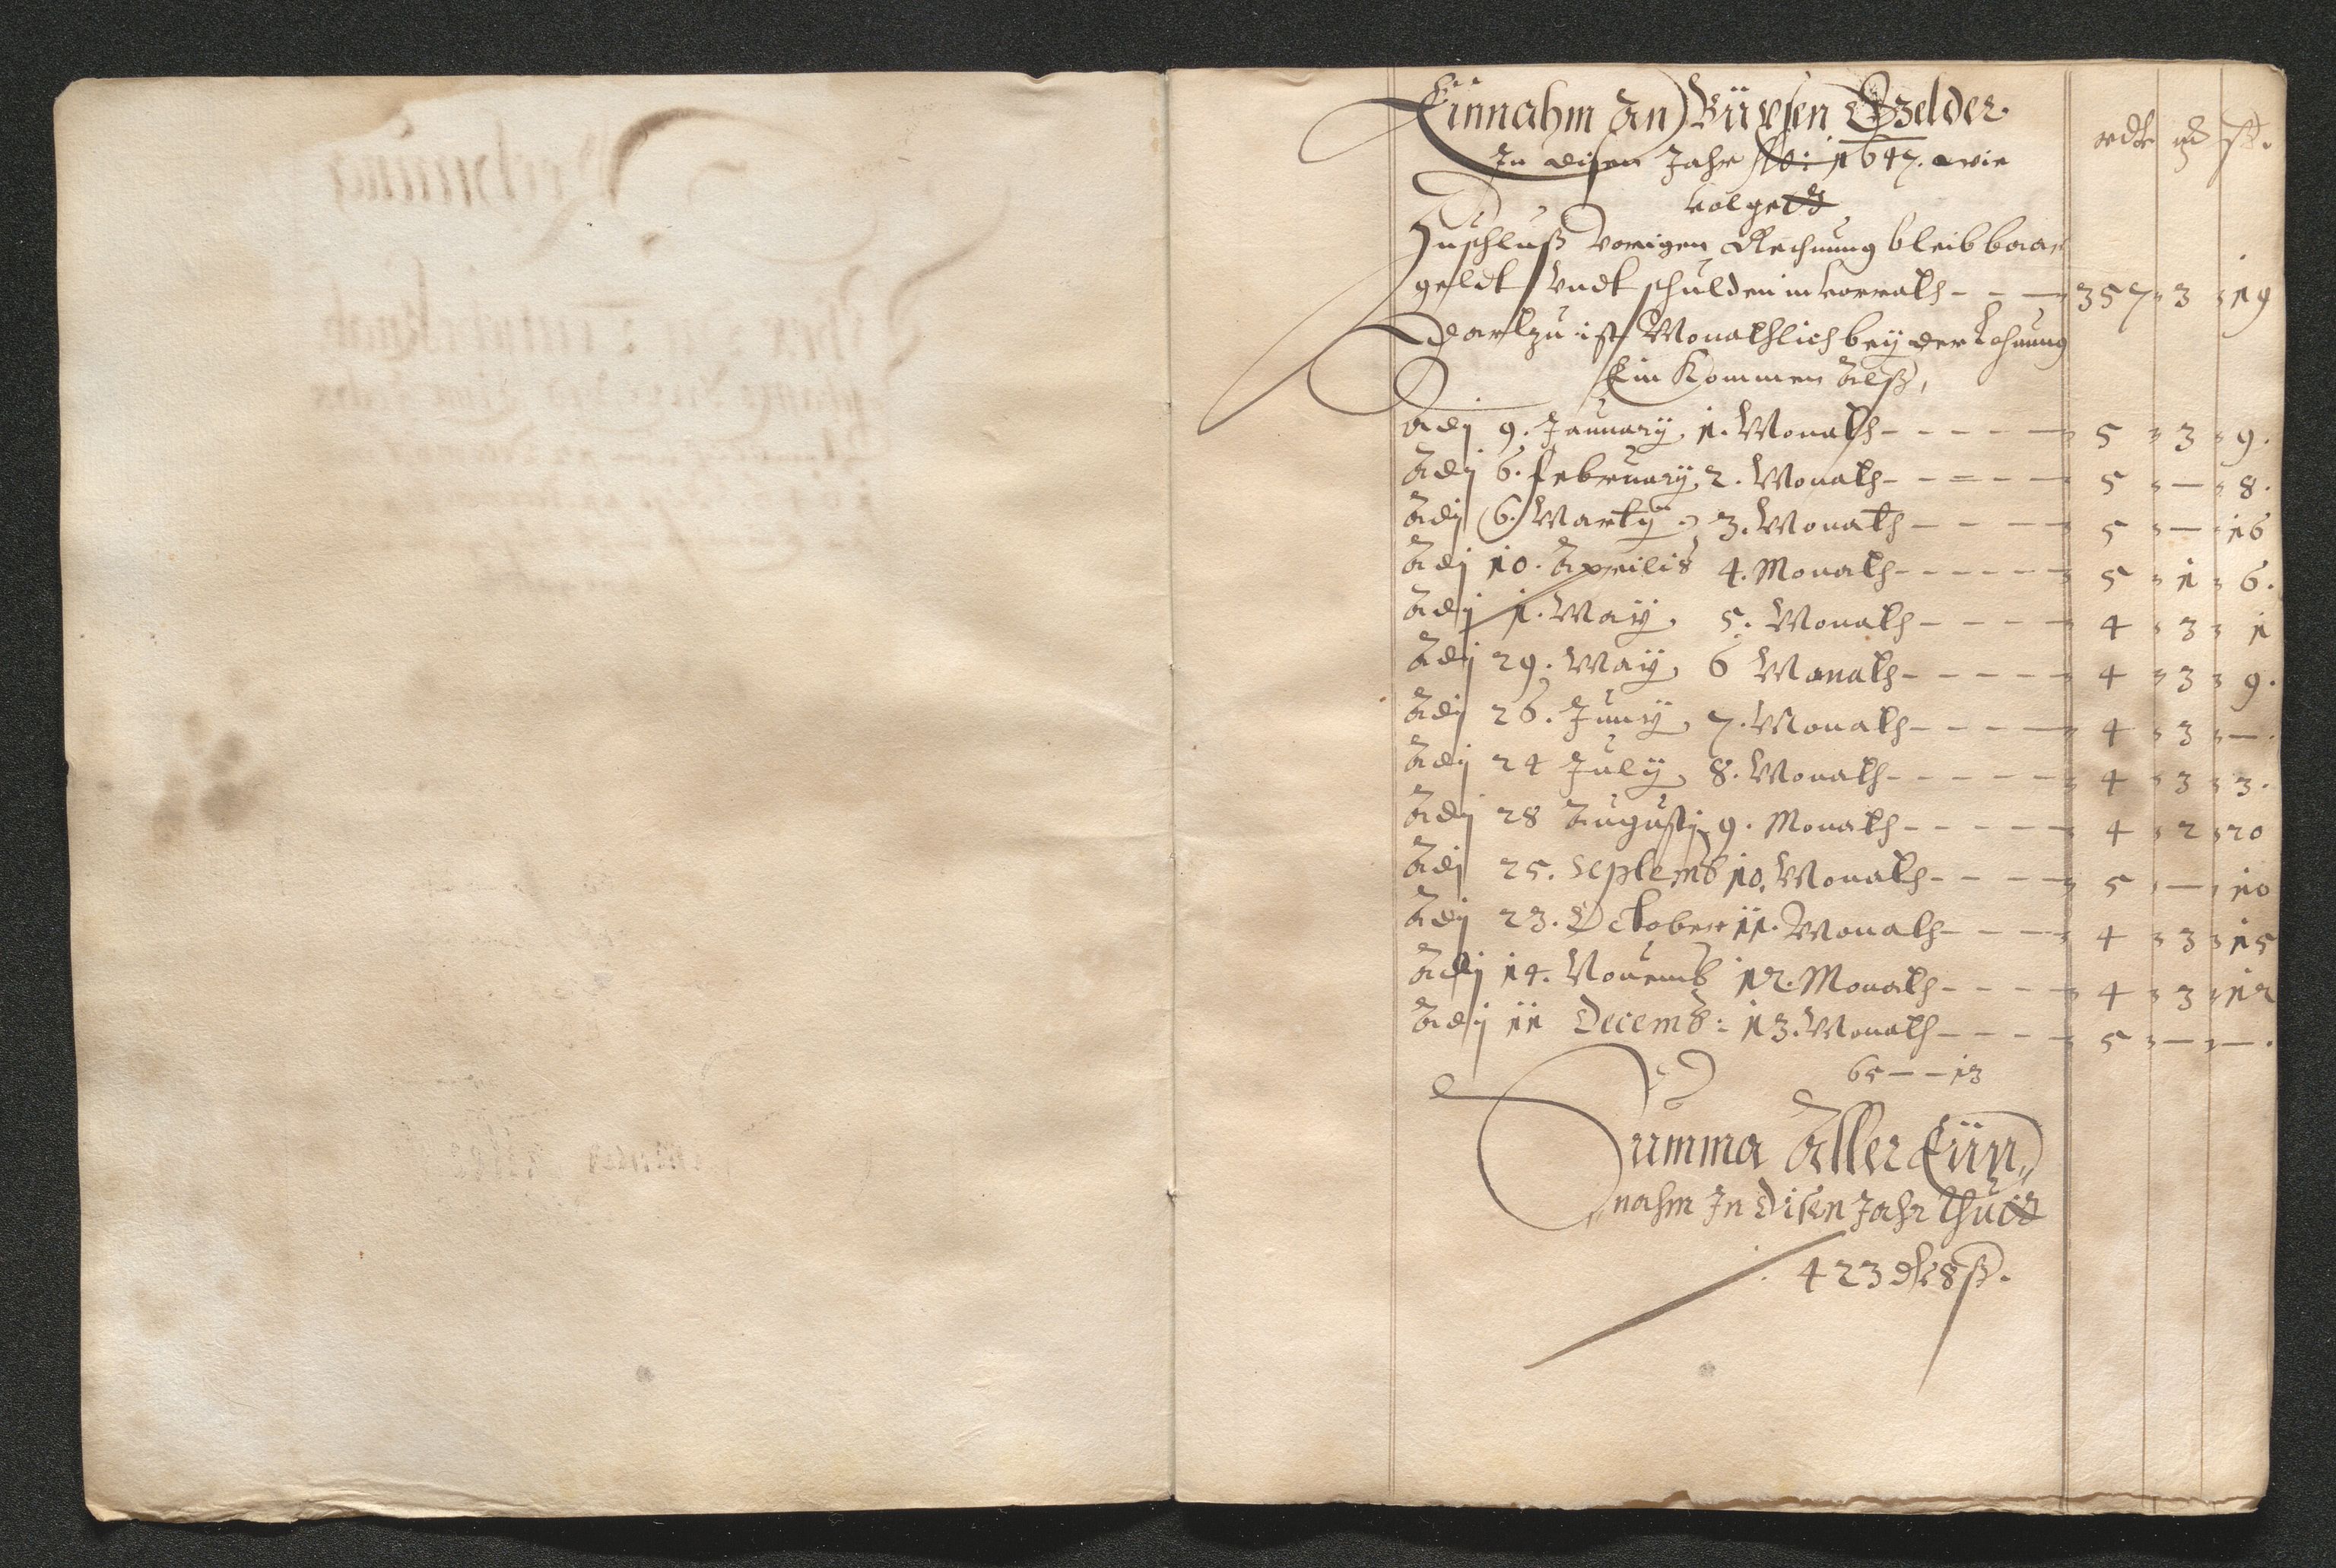 Einnahm An Büxsen Gelder
In disen Jahr Ao: 1647. wie
volgett
rdt ß
Zuschluß vorigen Rechnung bleib baar
geldt Vndt schulden in vorrath - - - 357 3 19
dartzu ist Monathlich bey der Lohnung
Ein Kommen Alß,
Adij 9. January 1. Monath - - - - - 5 3 9.
Adij 6. February 2. Monath - - - - - 5 — 8.
Adij 6. Marty 3. Monath - - - - 5 — 16
Adij 10. Aprilis 4. Monath - - - - - 5 1 6.
Adij 1. May 5. Monath - - - - 4 3 1
Adij 29. May 6 Monath - - - - - 4 3 9.
Adij 26. Juny 7. Monath - - - - 4 3 —.
Adij 24 July 8. Monath - - - - - 4 3 3.
Adij 28 Augusti 9. Monath - - - - - 4 2 20
Adij 25. Septemb 10. Monath - - - - 5 — 10
Adij 23. October 11. Monath - - - - 4 3 15
Adij 14. Nouemb 12. Monath - - - - 4 3 12
Adij 11 Decemb: 13. Monath - - - - 5 — —.
65 — — 13
Summa Aller Ein„
nahm In Disen Jahr thutt
423 8 ß.